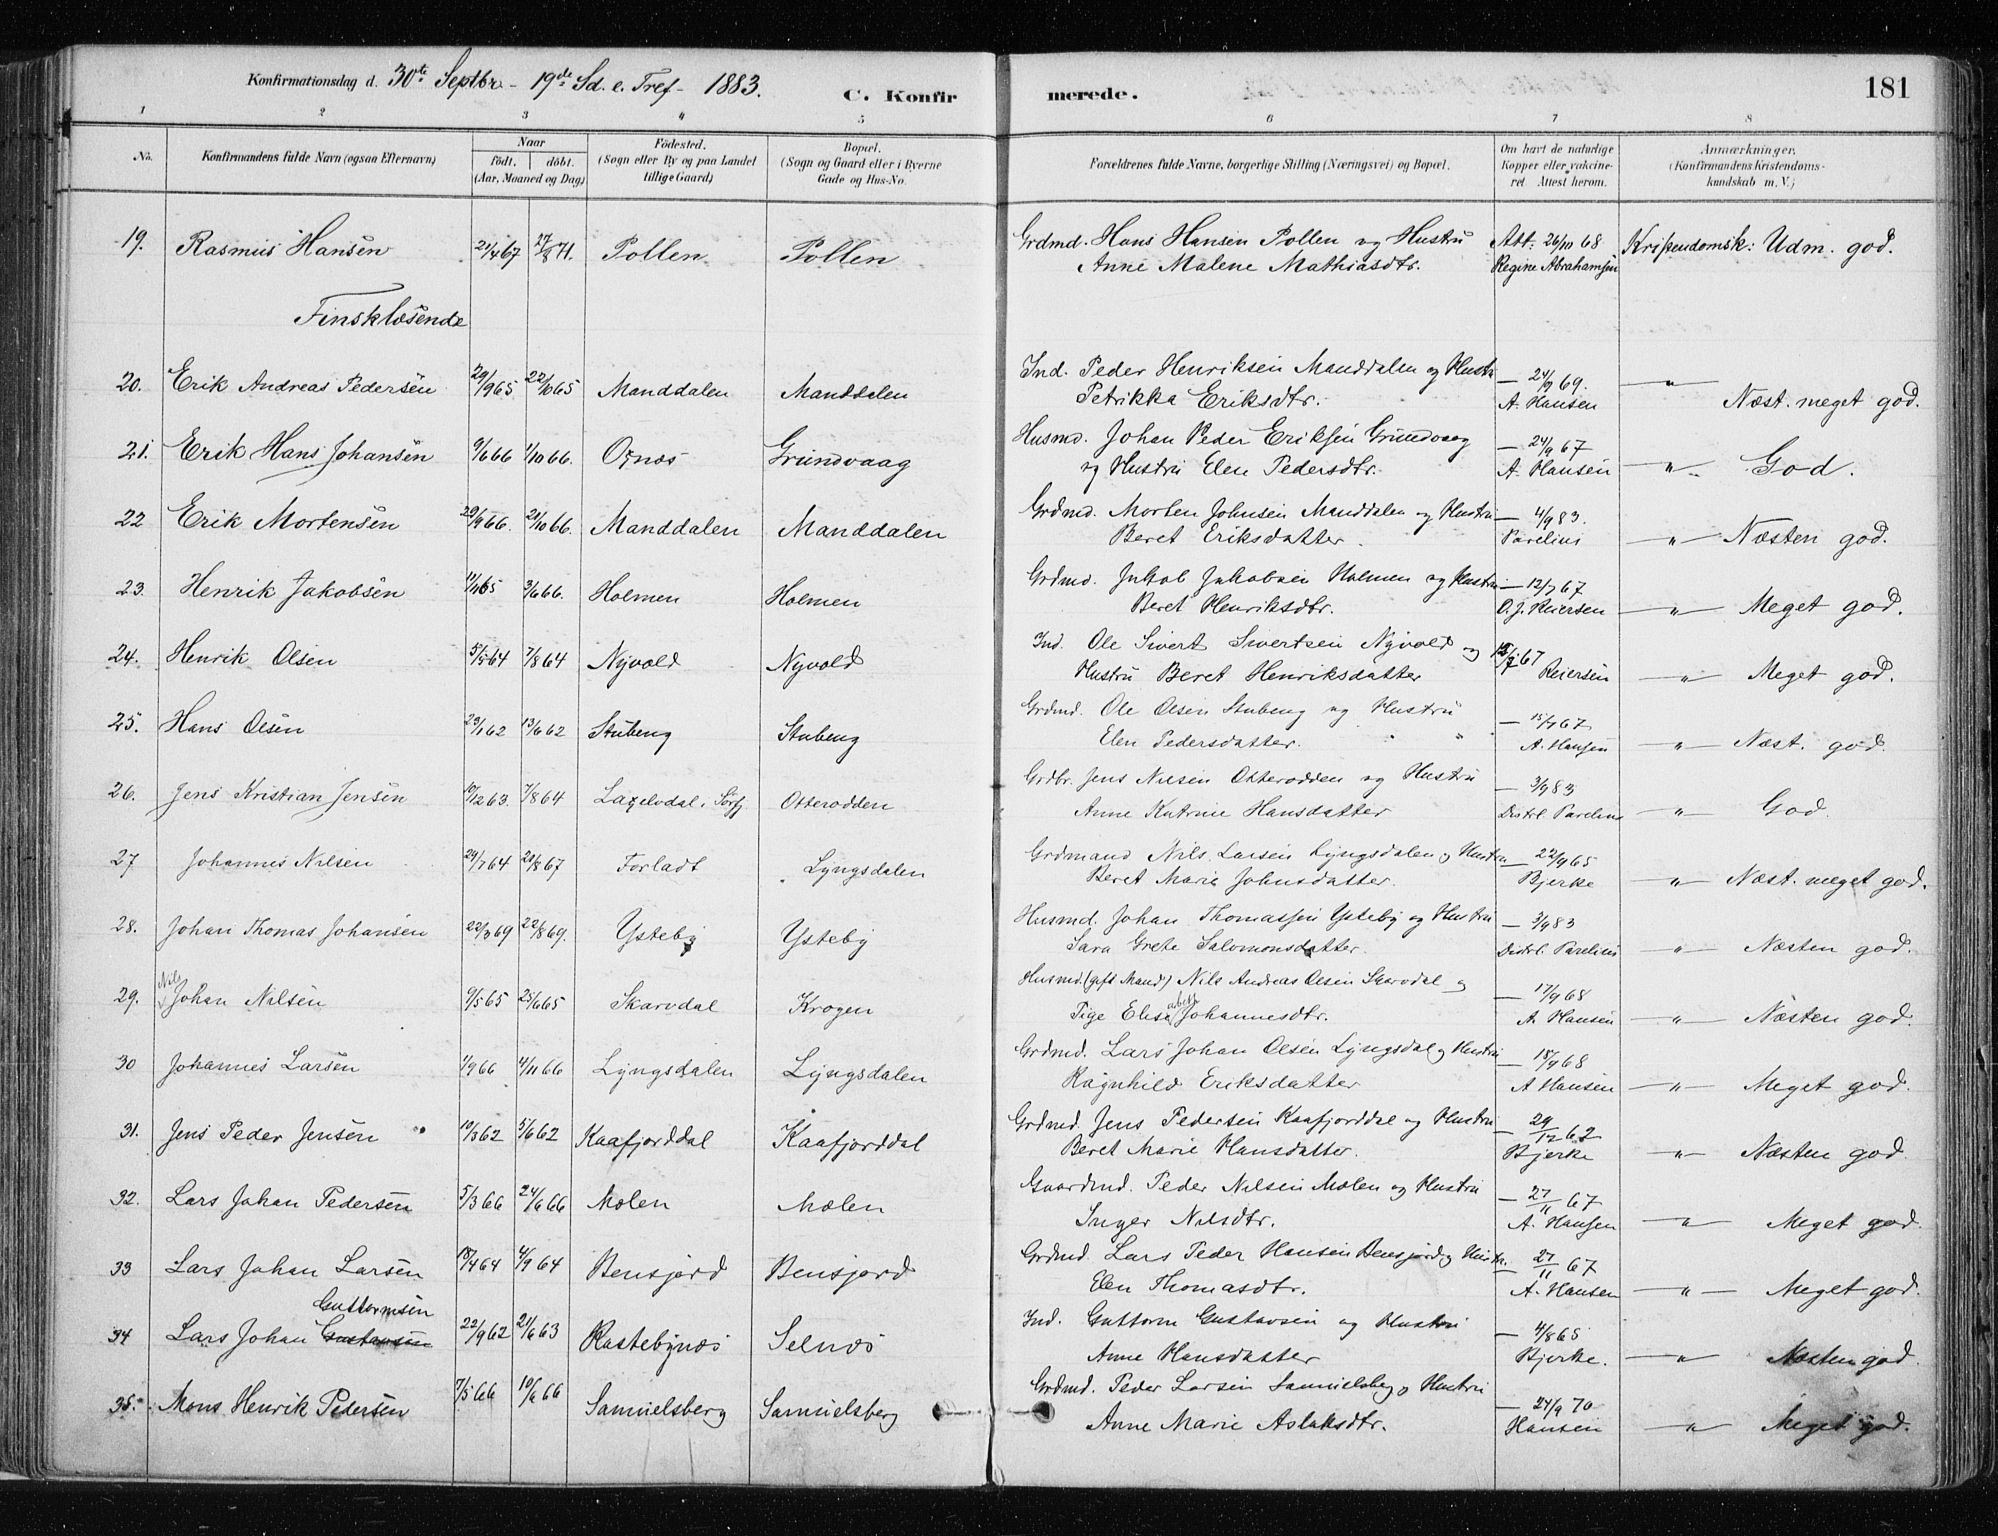 Konfirmationsdag d. 30te Septbr - 19de Sd. e. Tref - 1883. C. Konfirmerede. 181
1 2 3 4 5 6 7 8
No. Konfirmandens fulde Navn (ogsaa Efternavn) Naar födt. döbt. (Aar, Maaned og Dag) Födested. (Sogn eller By og paa Landet tillige Gaard) Bopæl. (Sogn og Gaard eller i Byerne Gade og Hus-No. Forældrenes fulde Navne, borgerlige Stilling (Næringsvei) og Bopæl. Om havt de naturlige Kopper eller vakcineret. Attest herom. Anmærkninger, (Konfirmandens Kristendomskundskab m. V.)
19. Rasmus Hansen 21/4 67 27/8 71. Pollen Pollen Grdmd. Hans Hansen Pollen og Hustru Att: 26/10 68 Kristendomsk: Udm. god.
Anne Malene Mathiasdtr. Regine Abrahamsen
Finsklæsende
20. Erik Andreas Pedersen 29/9 65 22/10 65 Manddalen Manddalen Ind. Peder Henriksen Manddalen og Hustr — 24/9 69. — " —
Petrikka Eriksdtr. A. Hansen Næst. meget god.
21. Erik Hans Johansen 9/6 66 1/10 66. Ornæs Grundvaag Husmd. Johan Peder Eriksen Grundvaag — 24/9 67
og Hustru Elen Pedersdtr. A. Hansen — " — God.
22 Erik Mortensen 20/9 66. 21/10 66. Manddalen Manddalen Grdmd. Morten Johnsen Manddalen og Hustru — 4/9 83.
Beret Eriksdatter. Parelius — " — Næsten god.
23. Henrik Jakobsen 11/11 65 3/6 66. Holmen Holmen Grdmd. Jakob Jakobsen Holmen og Hustru — 12/7 67
Beret Henriksdtr. O. J. Reiersen — " — Meget god.
24. Henrik Olsen 5/5 64 7/8 64 Nyvold Nyvold Ind. Ole Sivert Sivertsen Nyvold og 12/7 67
Hustru Beret Henriksdatter Reiersen — " — Meget god.
25. Hans Olsen 29/1 62 13/6 62 Stubeng Stubeng Grdmd. Ole Olsen Stubeng og Hustru — 15/7 67
Elen Pedersdatter. A. Hansen — " — Næst. god.
26. Jens Kristian Jensen 10/12 63. 7/8 64 Laxelvdal i Sörfj Otterodden Grdbr. Jens Nilsen Otterodden og Hustru — 3/9 83
Anne Katrine Hansdatter Distrl. Parelius — " — God.
27 Johannes Nilsen 24/7 64 21/8 67 Forladt Lyngsdalen Grdmand Nils Larsen Lyngsdalen og Hustru — 22/9 65
Beret Marie Johnsdatter. Bjerke — " — Næst. meget god.
28. Johan Thomas Johansen 22/3 69 22/8 69. Ysteby Ysteby Husmd. Johan Thomassen Ysteby og Hustru — 3/9 83
Sara Grete Salomonsdatter. Distrl. Parelius — " — Næsten god.
Nils
29. Johan Nilsen 9/5 65 25/6 65 Skarvdal Krogen Husmd. (gift Mand) Nils Andreas Olsen Skarvdal og — 17/9 68
Pige Elisabeth Johannesdtr. A. Hansen — " — Næsten god.
30 Johannes Larsen 1/9 66 4/11 66 Lyngsdalen Lyngsdalen Grdmd. Lars Johan Olsen Lyngsdal og Hustru — 18/9 68
Ragnhild Eriksdatter A Hansen — " — Meget god.
31. Jens Peder Jensen 10/3 62 5/6 62 Kaafjorddal Kaafjorddal Grdmd. Jens Pedersen Kaafjorddal og Hustru — 29/12 62
Beret Marie Hansdatter. Bjerke — " — Næsten god.
32. Lars Johan Pedersen 5/3 66 24/6 66 Molen Molen Gaardmd. Peder Nilsen Molen og Hustru — 27/11 67
Inger Nilsdtr. A. Hansen — " — Meget god.
33 Lars Johan Larsen 18/4 64 4/9 64 Bensjord Bensjord Grdmd. Lars Peder Hansen Bensjord og Hustr. — 27/11 67
Elen Thomasdtr. A. Hansen — " — Meget god.
Guttormsen
34 Lars Johan Gustavsen 22/9 62 21/6 63 Rastebynæs Selnæs Ind. Guttorm Gustavsen og Hustru — 4/8 65
Anne Hansdatter Bjerke. — " — Næsten god.
35. Mons Henrik Pedersen 7/5 66 10/6 66 Samuelsberg Samuelsberg Grdmd. Peder Larsen Samuelsberg og Hustru — 24/9 70
Anne Marie Aslaksdtr. Hansen — " — Meget god.